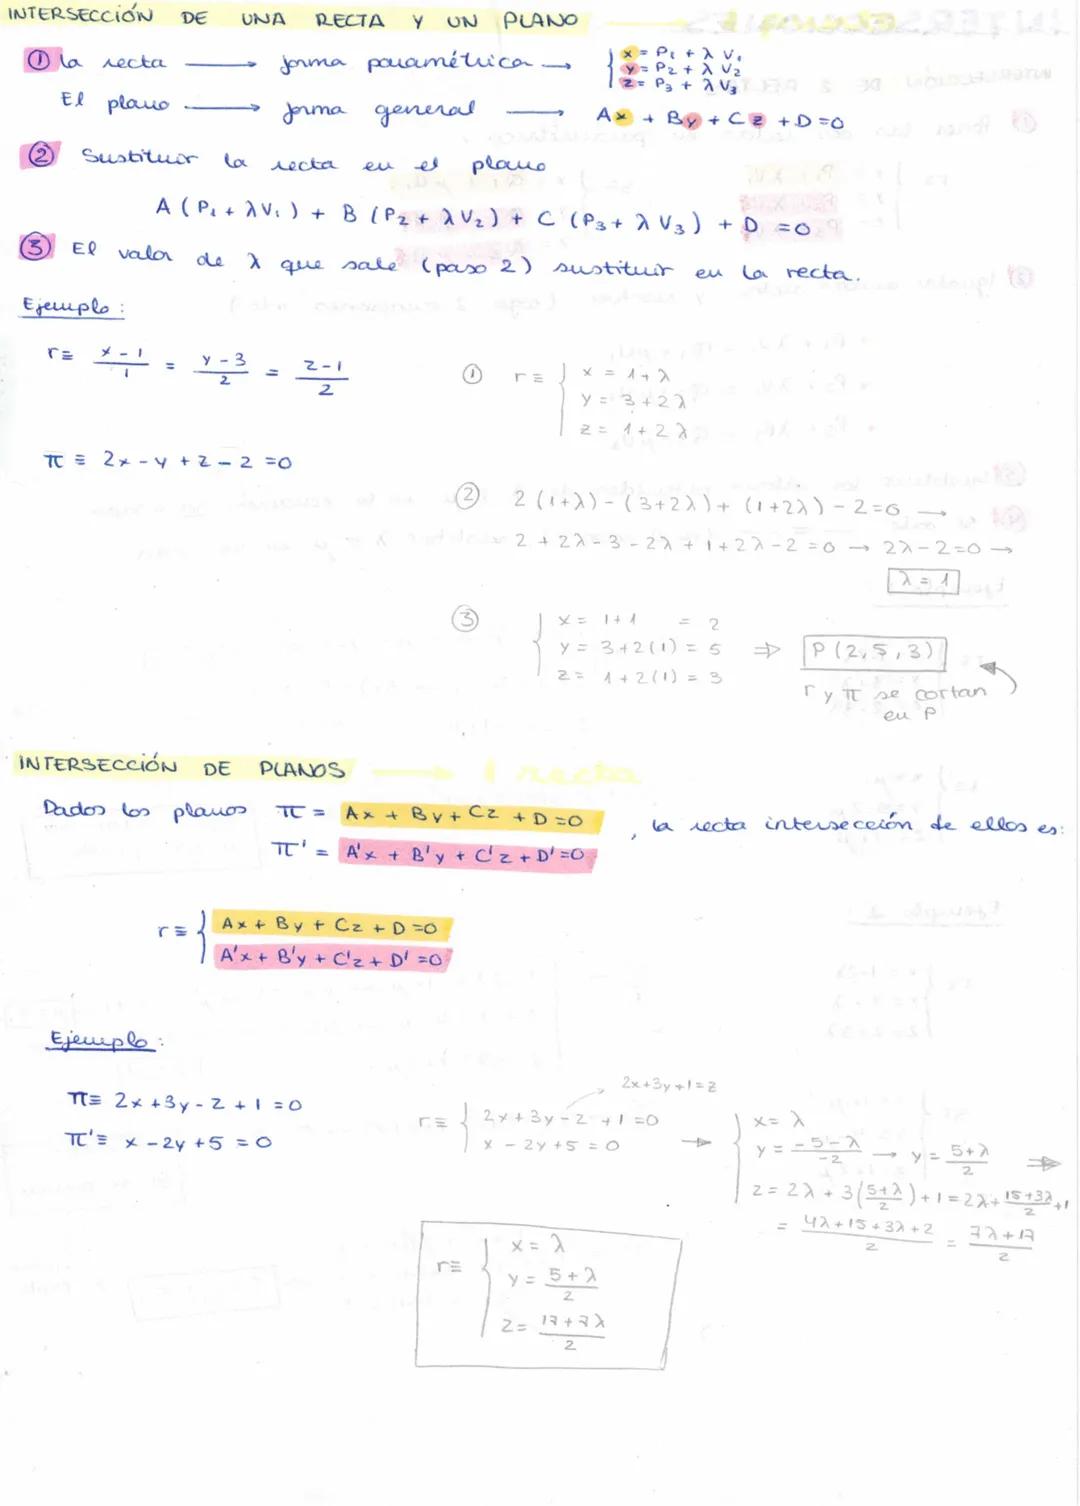 INTERSECCIÓN DE UNA RECTA Y UN PLANO
① la recta → forma paramétrica → { x = P₁ + λ V₁
y = P₂ + λ V₂
z = P₃ + λ V₃
El plano → forma general → Ax + By + Cz + D = 0
② Sustituir la recta en el plano
A (P₁ + λV₁) + B (P₂ + λV₂) + C (P₃ + λV₃) + D = 0
③ El valor de λ que sale (paso 2) sustituir en la recta.
Ejemplo:
r ≡ (x-1)/1 = (y-3)/2 = (z-1)/2
① r ≡ { x = 1+λ
y = 3+2λ
z = 1+2λ
π ≡ 2x - y + z - 2 = 0
② 2(1+λ) - (3+2λ) + (1+2λ) - 2 = 0 →
2 + 2λ - 3 - 2λ + 1 + 2λ - 2 = 0 → 2λ - 2 = 0 →
λ = 1
③ { x = 1+1 = 2
y = 3+2(1) = 5 ⇒ P(2,5,3)
z = 1+2(1) = 3
r y π se cortan
en P
INTERSECCIÓN DE PLANOS → 1 recta
Dados los planos π = Ax + By + Cz + D = 0
π' = A'x + B'y + C'z + D' = 0 , la recta intersección de ellos es:
r ≡ { Ax + By + Cz + D = 0
A'x + B'y + C'z + D' = 0
Ejemplo:
π ≡ 2x + 3y - z + 1 = 0
π' ≡ x - 2y + 5 = 0
2x+3y+1=z
r ≡ { 2x + 3y - z + 1 = 0
x - 2y + 5 = 0 →
{ x = λ
y = (-5-λ)/-2 → y = (5+λ)/2 ⇒
z = 2λ + 3((5+λ)/2) + 1 = 2λ + (15+3λ)/2 + 1
= (4λ+15+3λ+2)/2 = (7λ+17)/2
r ≡ { x = λ
y = (5+λ)/2
z = (17+7λ)/2